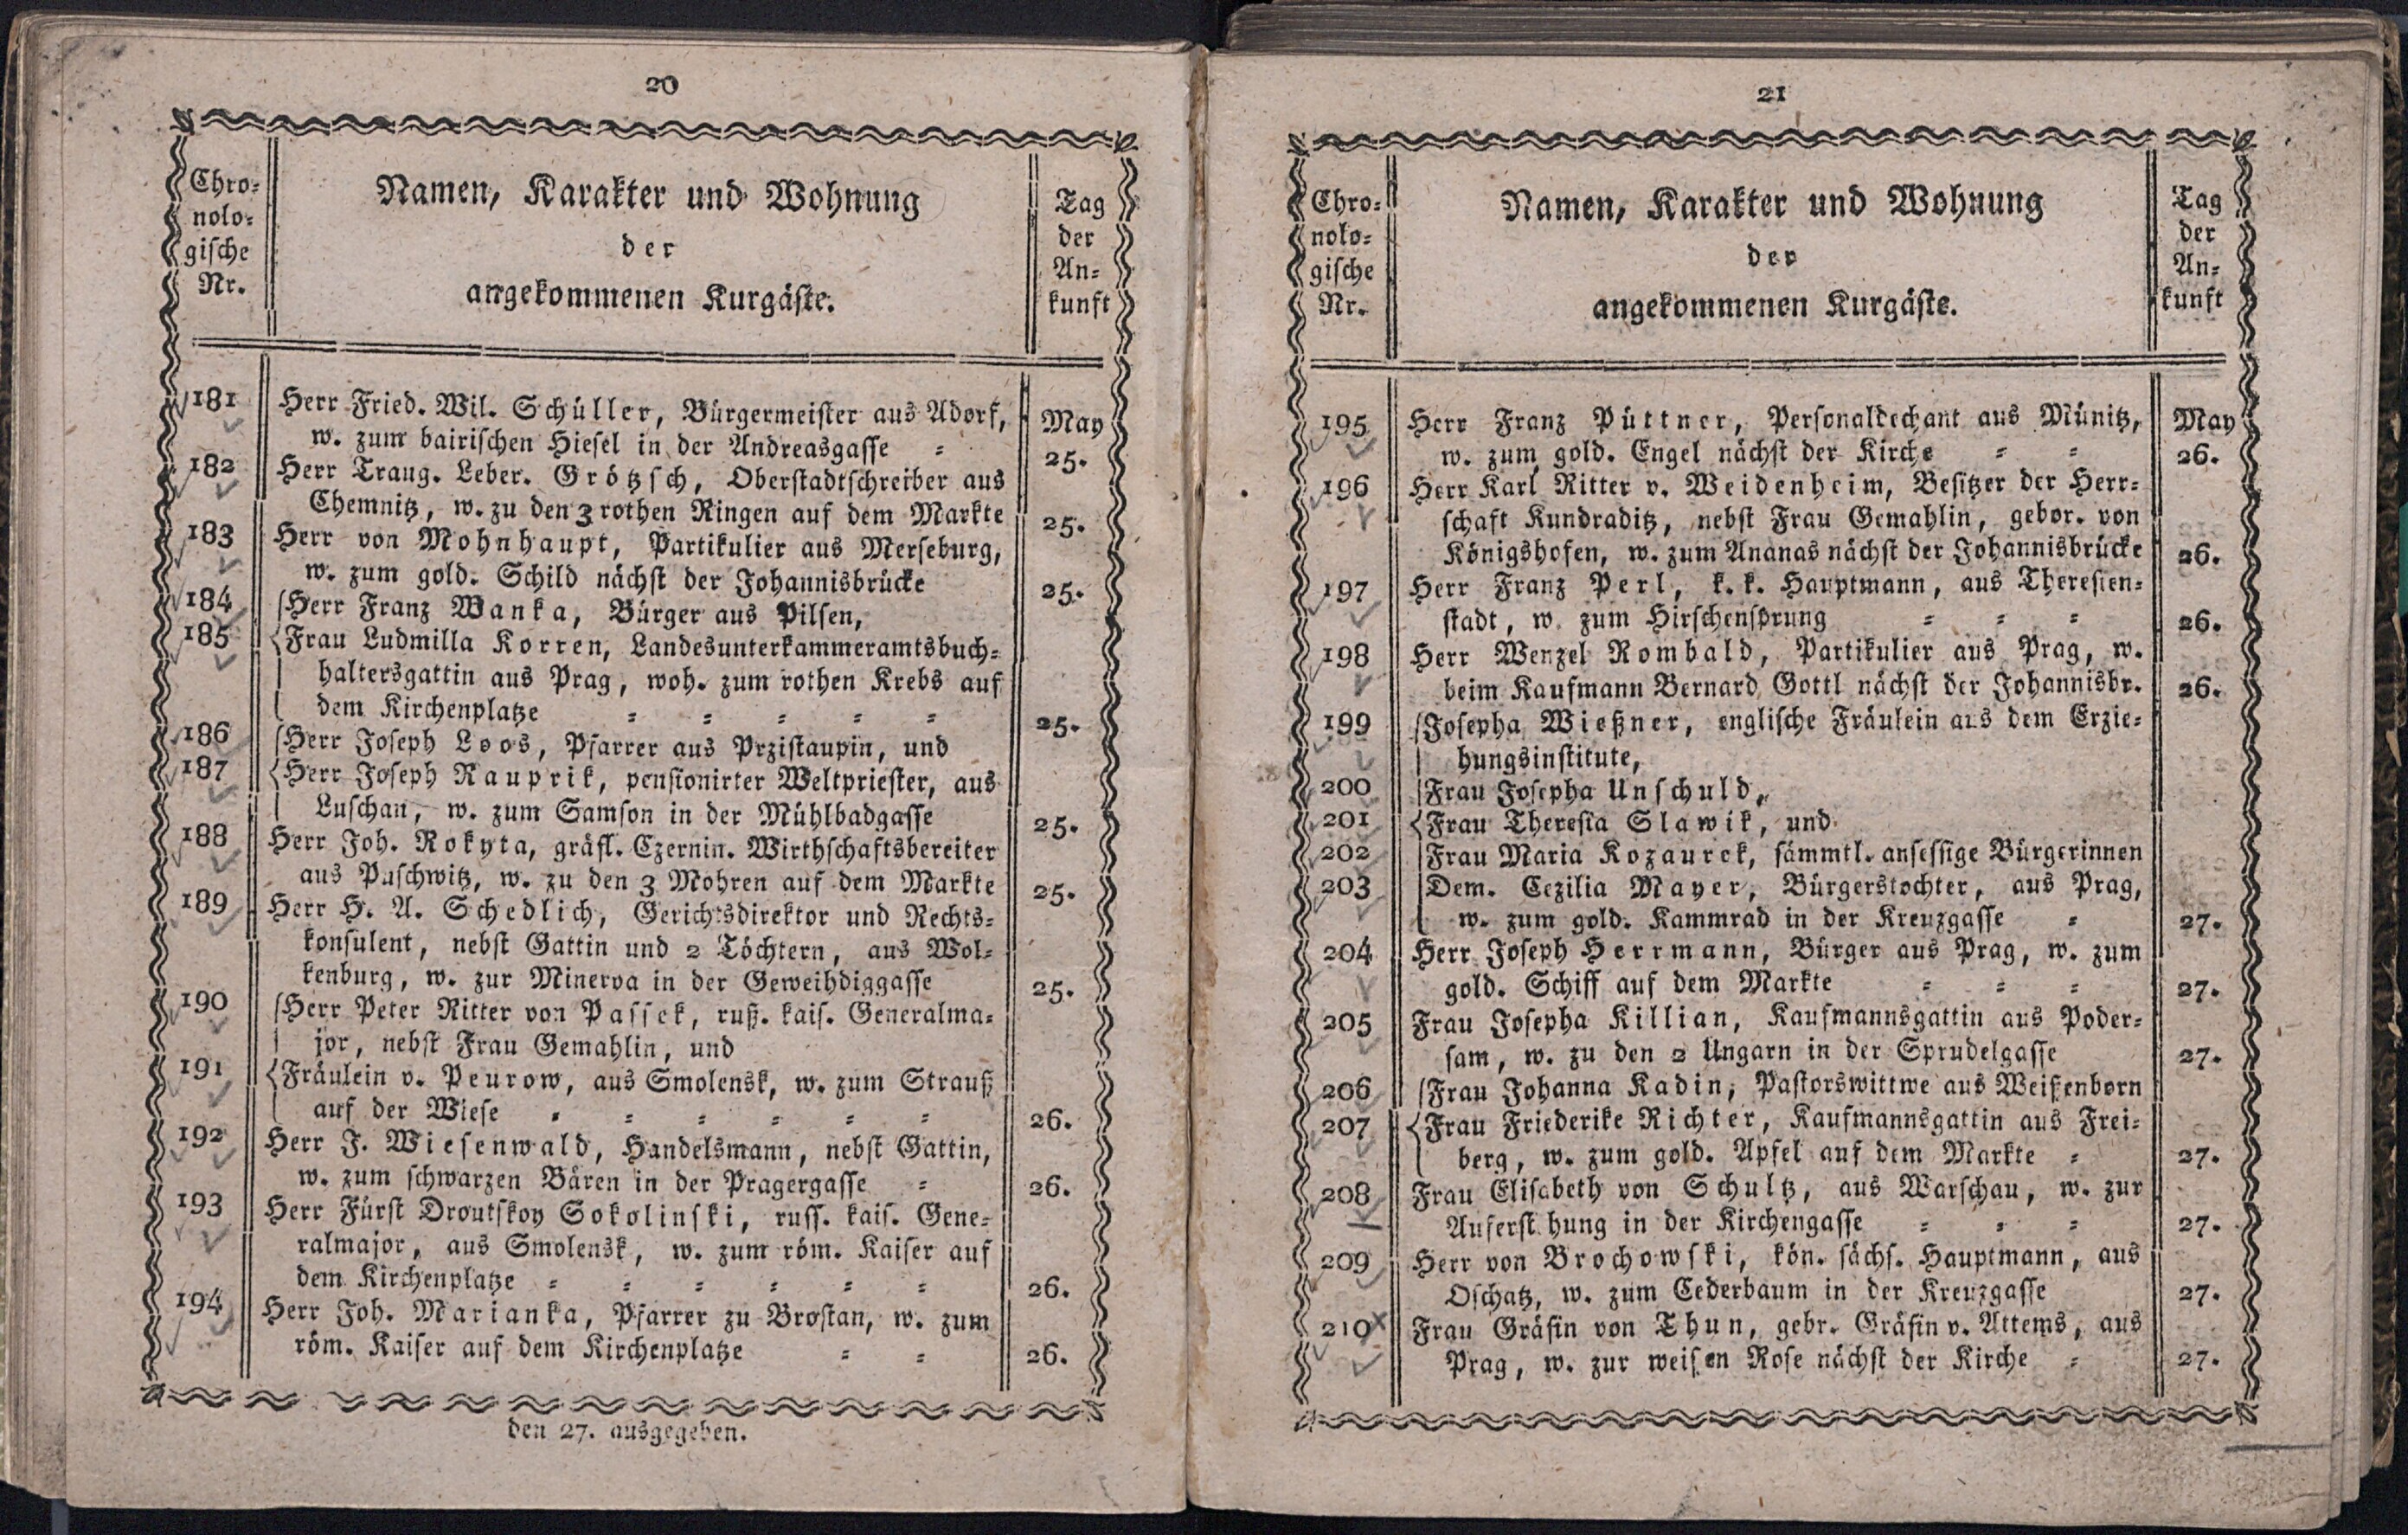 20
Chro-
nolo-
gische
Nr.
Namen, Karakter und Wohnung
der
angekommenen Kurgäste.
Tag
der
An-
kunft
181 Herr Fried. Wil. Schüller, Bürgermeister aus Adorf, May
w. zum bairischen Hiesel in der Andreasgasse = 25.
182 Herr Traug. Leber. Grötzsch, Oberstadtschreiber aus
Chemnitz, w. zu den 3 rothen Ringen auf dem Markte 25.
183 Herr von Mohnhaupt, Partikulier aus Merseburg,
w. zum gold. Schild nächst der Johannisbrücke 25.
184 Herr Franz Wanka, Bürger aus Pilsen,
185 Frau Ludmilla Korren, Landesunterkammeramtsbuch-
haltersgattin aus Prag, woh. zum rothen Krebs auf
dem Kirchenplatze = = = = = 25.
186 Herr Joseph Loos, Pfarrer aus Przistaupin, und
187 Herr Joseph Rauprik, pensionirter Weltpriester, aus
Luschan, w. zum Samson in der Mühlbadgasse 25.
188 Herr Joh. Rokyta, gräfl. Czernin. Wirthschaftsbereiter
aus Puschwitz, w. zu den 3 Mohren auf dem Markte 25.
189 Herr H. A. Schedlich, Gerichtsdirektor und Rechts-
konsulent, nebst Gattin und 2 Töchtern, aus Wol-
kenburg, w. zur Minerva in der Geweihdiggasse 25.
190 Herr Peter Ritter von Passek, ruß. kais. Generalma-
jor, nebst Frau Gemahlin, und
191 Fräulein v. Peurow, aus Smolensk, w. zum Strauß
auf der Wiese = = = = = = 26.
192 Herr J. Wiesenwald, Handelsmann, nebst Gattin,
w. zum schwarzen Bären in der Pragergasse = 26.
193 Herr Fürst Droutskoy Sokolinski, russ. kais. Gene-
ralmajor, aus Smolensk, w. zum röm. Kaiser auf
dem Kirchenplatze = = = = = = 26.
194 Herr Joh. Marianka, Pfarrer zu Brostan, w. zum
röm. Kaiser auf dem Kirchenplatze = = 26.
den 27. ausgegeben.
21
Chro-
nolo-
gische
Nr.
Namen, Karakter und Wohnung
der
angekommenen Kurgäste.
Tag
der
An-
kunft
195 Herr Franz Püttner, Personaldechant aus Münitz, May
w. zum gold. Engel nächst der Kirche = = 26.
196 Herr Karl Ritter v. Weidenheim, Besitzer der Herr-
schaft Kundraditz, nebst Frau Gemahlin, gebor. von
Königshofen, w. zum Ananas nächst der Johannisbrücke 26.
197 Herr Franz Perl, k. k. Hauptmann, aus Theresien-
stadt, w. zum Hirschensprung = = = 26.
198 Herr Wenzel Rombald, Partikulier aus Prag, w.
beim Kaufmann Bernard Gottl nächst der Johannisbr. 26.
199 Josepha Wießner, englische Fräulein aus dem Erzie-
hungsinstitute,
200 Frau Josepha Unschuld,
201 Frau Theresia Slawik, und
202 Frau Maria Kozaurek, sämmtl. ansessige Bürgerinnen
203 Dem. Cezilia Mayer, Bürgerstochter, aus Prag,
w. zum gold. Kammrad in der Kreuzgasse = 27.
204 Herr Joseph Herrmann, Bürger aus Prag, w. zum
gold. Schiff auf dem Markte = = = 27.
205 Frau Josepha Killian, Kaufmannsgattin aus Poder-
sam, w. zu den 2 Ungarn in der Sprudelgasse 27.
206 Frau Johanna Kadin, Pastorswittwe aus Weißenborn
207 Frau Friederike Richter, Kaufmannsgattin aus Frei-
berg, w. zum gold. Apfel auf dem Markte = 27.
208 Frau Elisabeth von Schultz, aus Warschau, w. zur
Auferst hung in der Kirchengasse = = = 27.
209 Herr von Brochowski, kön. sächs. Hauptmann, aus
Oschatz, w. zum Cederbaum in der Kreuzgasse 27.
210 Frau Gräfin von Thun, gebr. Gräfin v. Attems, aus
Prag, w. zur weisen Rose nächst der Kirche = 27.